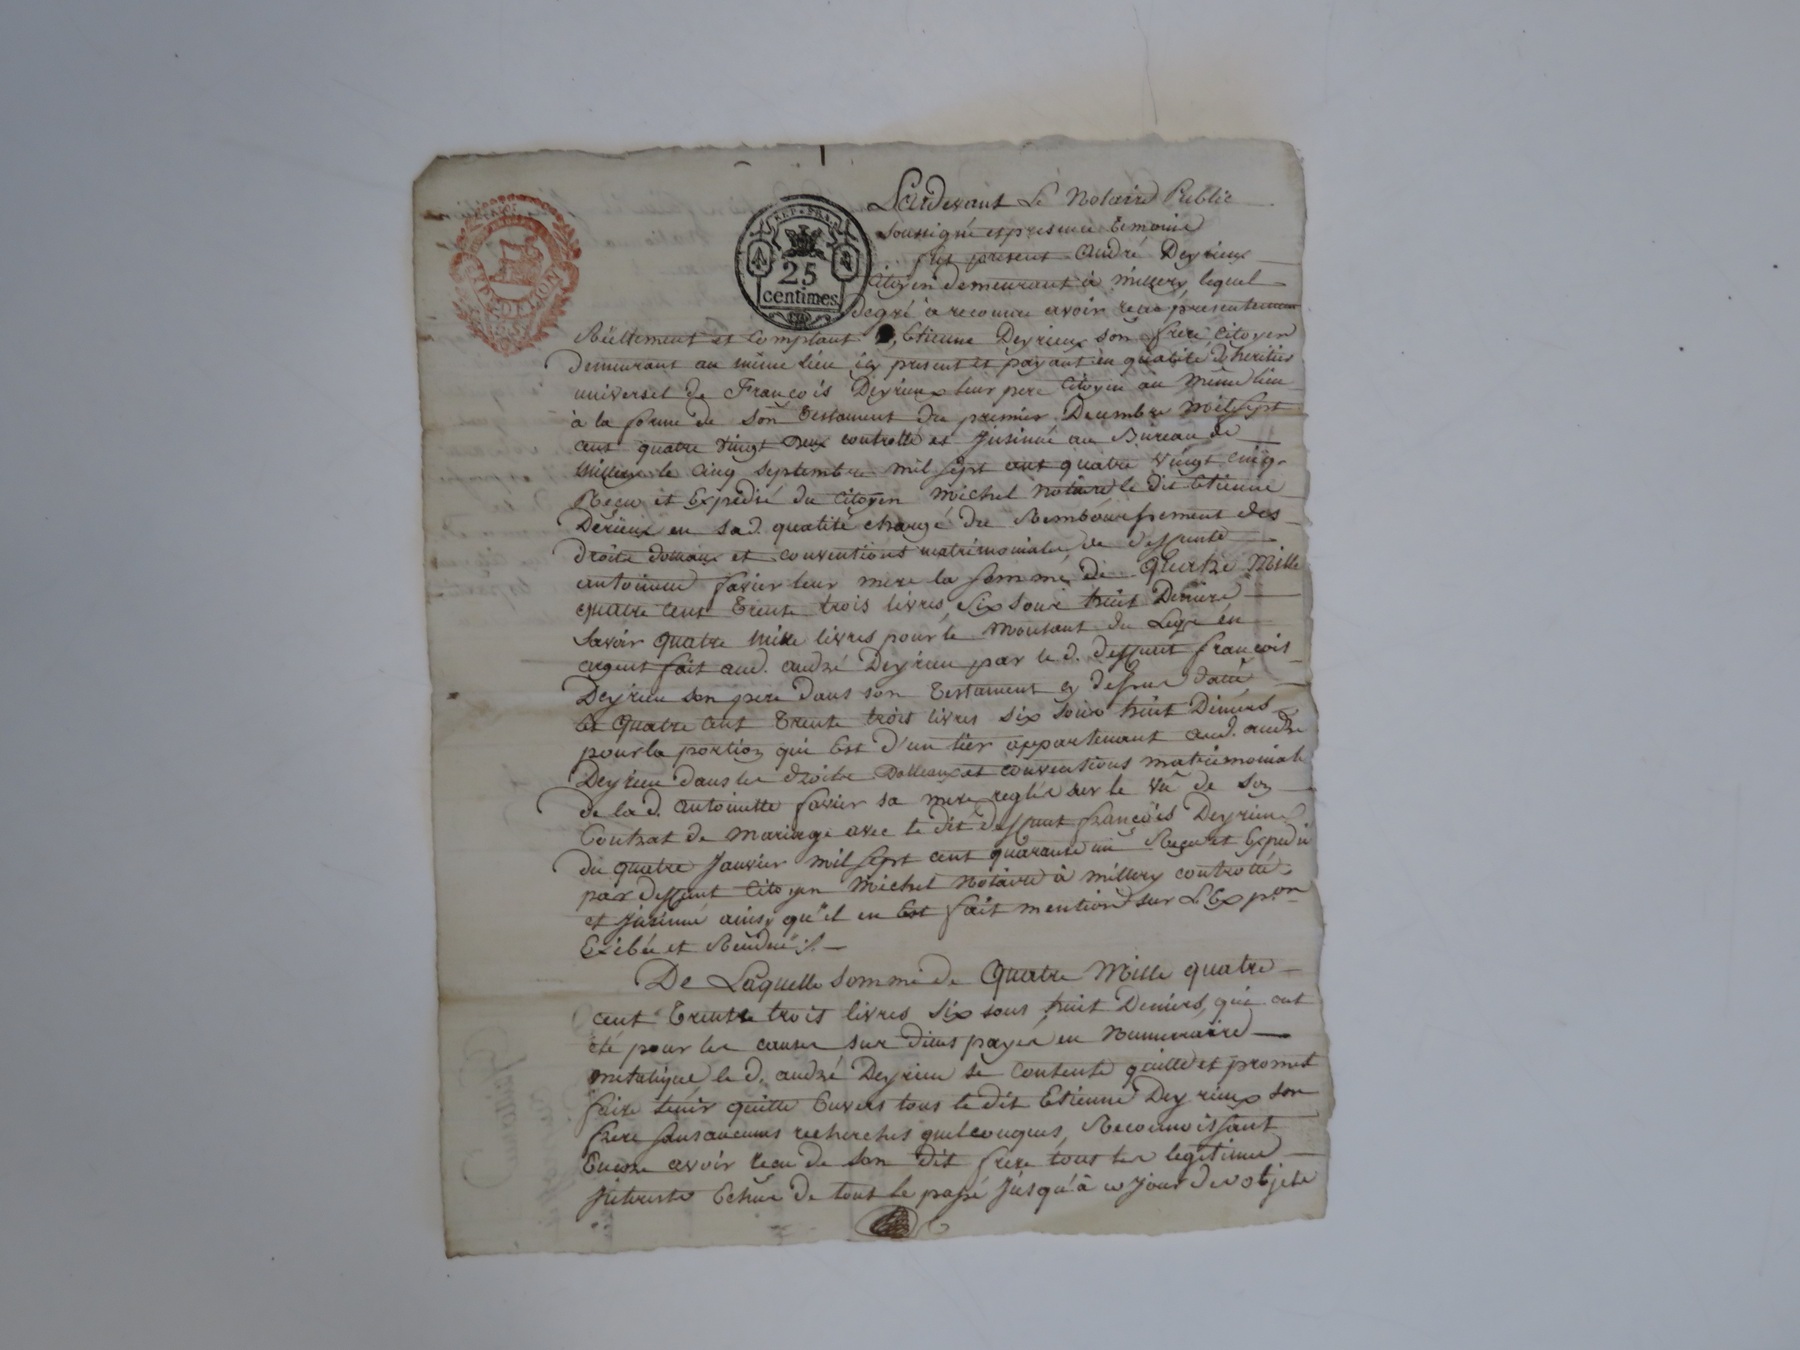 REP. FRA.
25
centimes
Pardevant Le Notaire Public
soussigné et presence temoins
fut présent André Deyrieux
Citoyen demeurant à millery, lequel
degré à reconnu avoir recu présentement
Réellement et Comptant Etienne Deyrieux son frere Citoyen
demeurant au même lieu icy present et payant en qualité d'heritier
universel de François Deyrieux leur pere Citoyen au même lieu
à la forme de son testament du premier Decembre mil sept
cent quatre vingt deux controllé et Insinué au Bureau de
millery le cinq septembre mil sept cent quatre vingt cinq
Reçu et Expedié du Citoyen Michel Notaire le dit Etienne
Derieux en sa d. qualité chargé du Remboursement des
droits dotaux et conventions matrimoniales de deffunte
antoinette favier leur mere la somme de Quatre Mille
quatre cent trente trois livres, six sous huit Deniers
savoir quatre mille livres pour le montant du Legs en
argent fait aud. andré Deyrieu par le d. deffunt françois
Deyrieu son pere dans son testament cy dessus datté
Et quatre cent trente trois livres six sous huit Deniers
pour la portion qui Est d'un tier appartenant aud. andré
Deyrieu dans les droits Dotteaux et conventions matrimoniale
de la d. antoinette favier sa mere reglés sur le Vû de son
Contrat de mariage avec le dit deffunt françois Deyrieux
du quatre Janvier mil sept cent quarante un Reçu et Expedié
par deffunt Citoyen Michel Notaire à millery controllé
et Insinué ainsy qu'il en Est fait mention sur L'Expon
Exibée et Rendue ./.
De Laquelle somme de Quatre Mille quatre
cent trente trois livres six sous huit Deniers, qui ont
été pour les causes sus dittes payés en Numeraire
metalique le d. andré Deyrieu se contente quitte et promet
faire tenir quitte Envers tous le dit Etienne Deyrieux son
frere sans aucunes recherches quelconques, Reconnoissant
Encore avoir recu de son dit frere tous les legitimes
Interests Echus de tout le passé Jusqu'à ce jour des objets